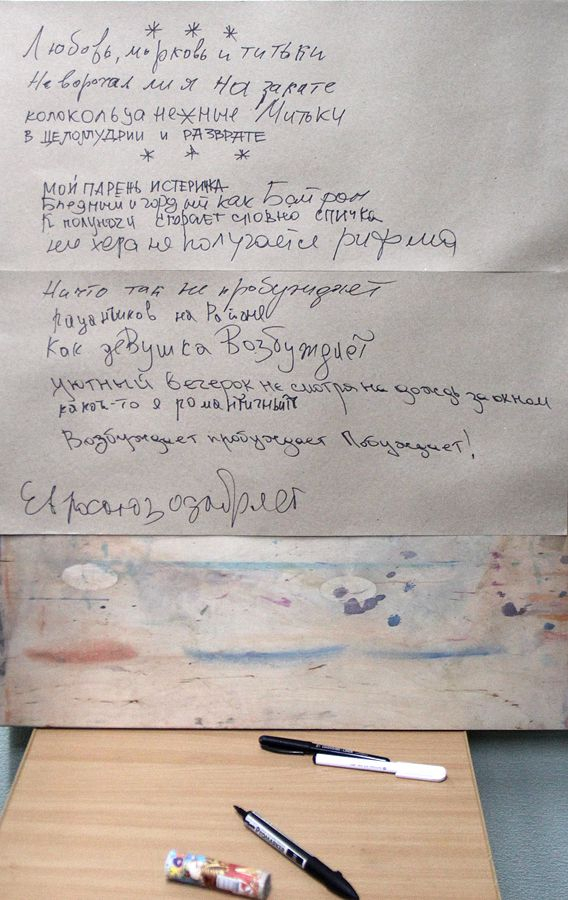 * * *
Любовь, морковь и титьки
Не ворочал ли я на закате
колокольца нежные Митьки
в целомудрии и разврате
* * *
мой парень истеричка
Бледный и гордый как Байрон
К полуночи сгорает словно спичка
ни хера не получается рифма
Ничто так не пробуждает
пацанчиков на районе
Как девушка Возбуждает
уютный вечерок не смотря на дождь за окном
какой-то я романтичный
Возбуждает пробуждает Побуждает!
Евросоюз одобряет